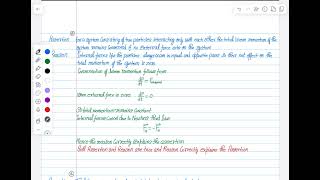 Assertion For a system consisting of two particles interacting only with each other the total linear momentum of the
system remains conserved if no external force acts on the system
Reason Internal forces by the particles always occur in equal and opposite pairs so their net effect on the
total momentum of the system is zero.
Conservation of linear momentum follows from
dP/dt = F external
When external force is zero
dP/dt = 0
So total momentum remains constant
Internal forces cancel due to Newton's third law
F₁₂ = -F₂₁
Hence the reason correctly explains the assertion
Both Assertion and Reason are true and Reason correctly explains the Assertion